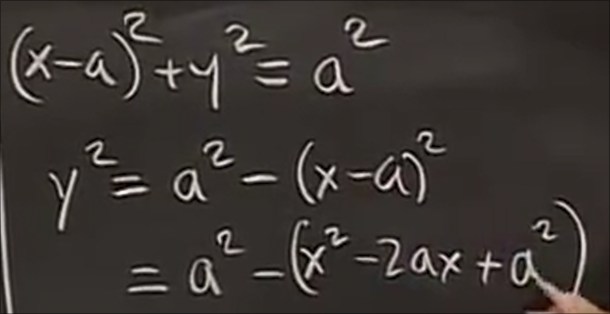 (x-a)² + y² = a²
y² = a² - (x-a)²
= a² - (x² - 2ax + a²)